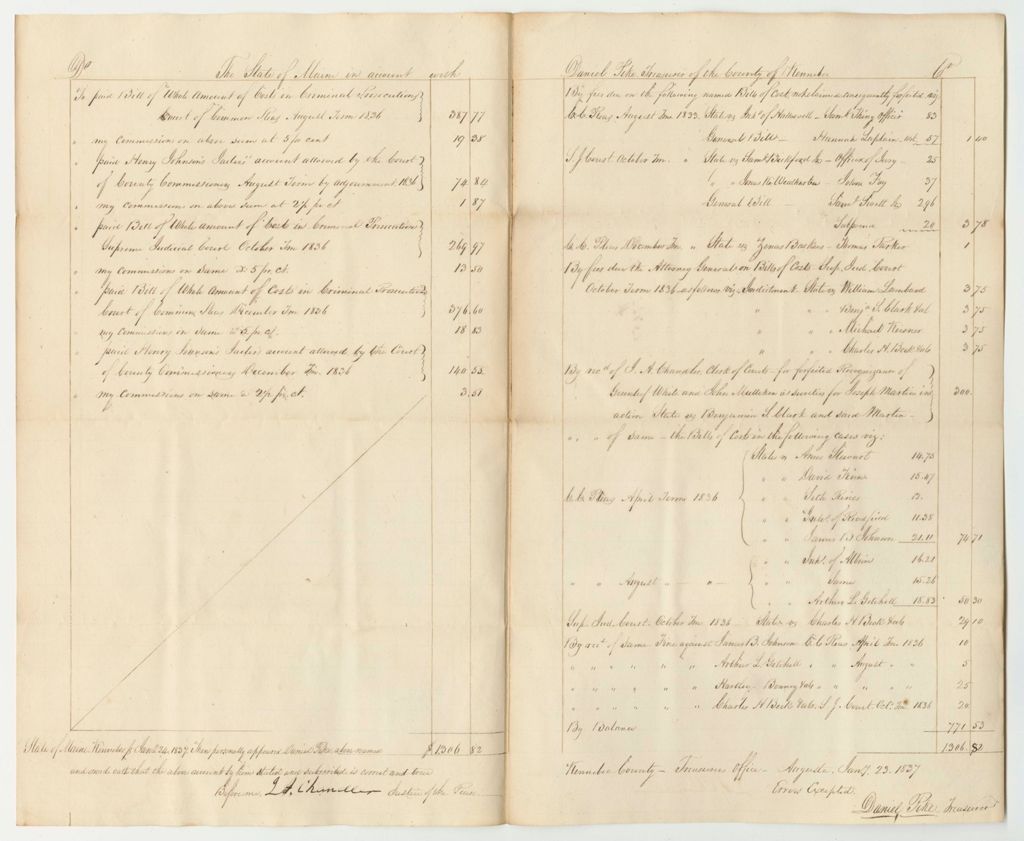 Dr The State of Maine in account with
To paid Bill of Whole Amount of Costs in Criminal Prosecutions
Court of Common Pleas August Term 1836 387 77
" my commission on above sum at 5 pr cent 19 38
" paid Henry Johnson's Jailer's account allowed by the Court
of County Commissioners August Term by adjournment 1836 74 84
" my commissions on above sum at 2½ pr ct. 1 87
" paid Bill of Whole amount of Costs in Criminal Prosecutions
Supreme Judicial Court October Tm 1836 269 97
" my commissions on same @ 5 pr. ct. 13 50
" paid Bill of Whole Amount of Costs in Criminal Prosecutions
Court of Common Pleas December Tm 1836 376.60
" my Commissions on same @ 5 pr. ct. 18 83
" paid Henry Johnson's Jailer's account allowed by the Court
of County Commissioners December Tm. 1836 140 55
" my Commissions on same @ 2½ pr. ct. 3.51
$1306 82
State of Maine Kennebec ss Jany. 24. 1837. Then personally appeared Daniel Pike above named
and made oath that the above account by him stated and subscribed is correct and true
Before me, J. A. Chandler Justice of the Peace
Daniel Pike Treasurer of the County of Kennebec Cr
By fees due on the following named Bills of Cost, which remained unsequently forfeited viz
C.C. Pleas August Tm. 1833. State vs Inhts of Hallowell - Officer 83
General Bill - Hannah 57 1 40
S. J Court October Tm. " State vs Saml Beckford &c - Officer of Jury - 25
" " - John Fay 37
General Bill - Saml. Sewall &c 296
20 3 78
C. C. Pleas December Tm " State vs Zenas Baskus - Thomas Parker 1
By fees due the Attorney General on Bills of Cost Sup. Jud Court
October Term 1836 as follows viz, Indictment State vs William Lambard 3 75
" " " Benjn. S. Clark &al 3 75
" " " Michael 3 75
" " " Charles H. Beck &als 3 75
By recd of J. A. Chandler, Clerk of Courts - for forfeited Recognizance of
Greenlief White and John Mulliken as sureties for Joseph Martin in 300.
action State vs Benjamin S. Clark and said Martin -
" " " of same - the Bills of Cost in the following cases viz:
State vs Amos Stewart 14.75
" " David 15.47
C.C. Pleas April Term 1836 " " Seth Rines 12.
" " Inhts. of Readfield 11.38
" " James B. Johnson 21.11 74 71
" " Inht. of Albion 16.21
" " August " - " - " " Same 15.26
" " Arthur L. Getchell 18.83 50 30
Sup. Jud. Court. October Tm. 1836 - State vs Charles H Beck &als 29 10
By recd. of Same Fine against James B. Johnson C. C. Pleas April Tm 1836 10
" " " " " " Arthur L. Getchell " " August " " 5
" " " " " " Hartley Bonney &als " " " " 25
" " " " " " Charles H Beck &als. S. J. Court Oct. Tm 1836 20
By Balance 771 53
1306.82
Kennebec County - Treasurers Office - Augusta, Jany. 23. 1837
Errors Excepted.
Daniel Pike, Treasurer